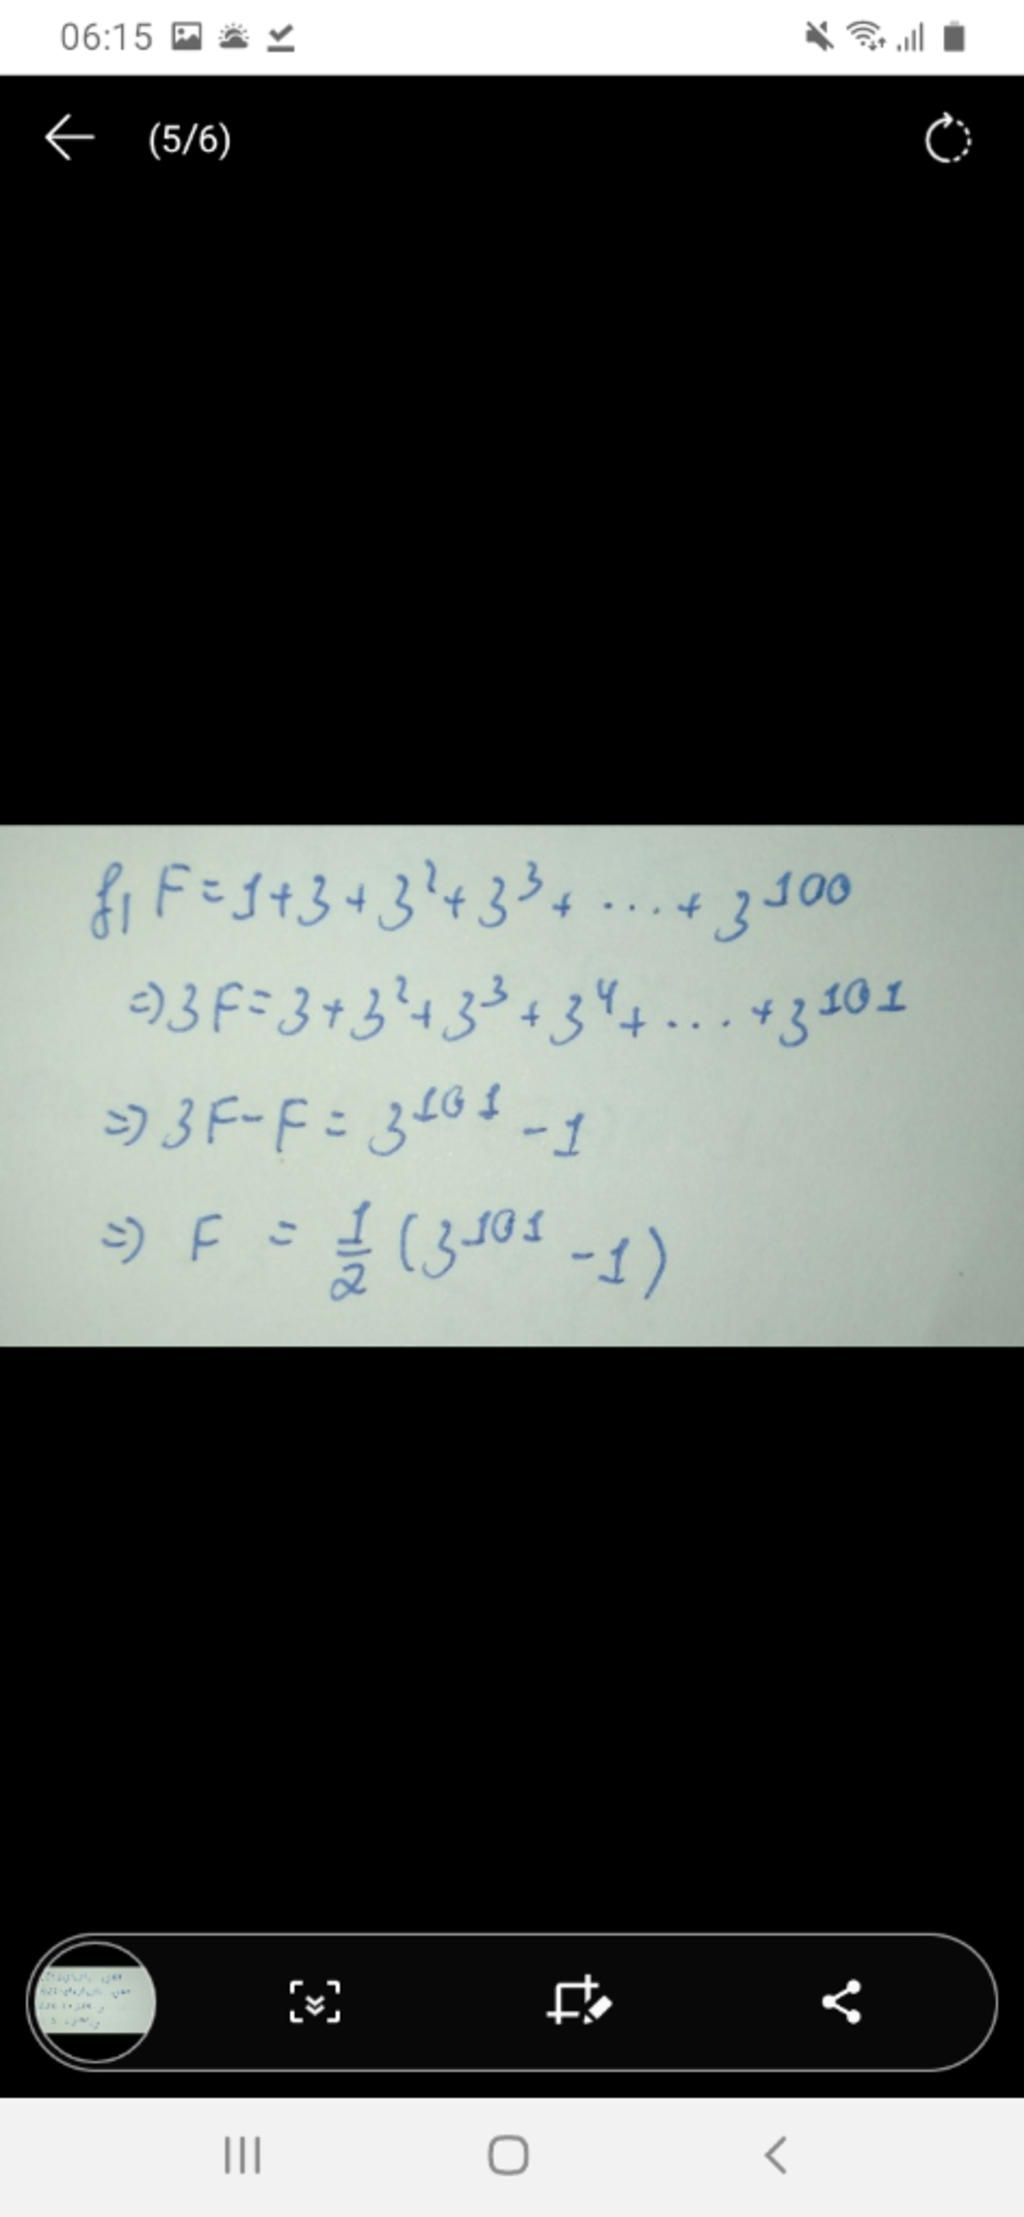 06:15
(5/6)
f, F=1+3+3²+3³+...+3¹⁰⁰
=)3F=3+3²+3³+3⁴+...+3¹⁰¹
=)3F-F=3¹⁰¹-1
=) F = 1/2 (3¹⁰¹-1)